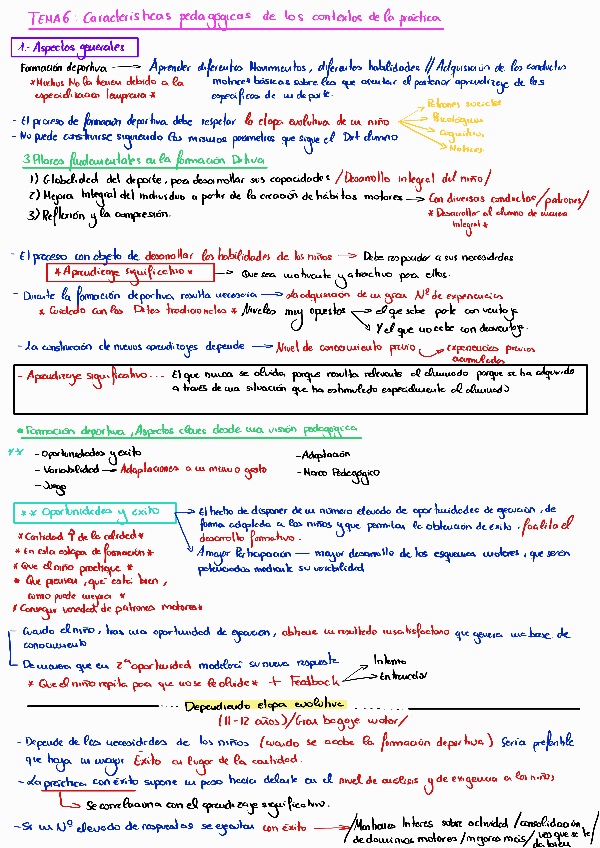 TEMA 6: Características pedagógicas de los contextos de la práctica
1.- Aspectos generales
Formación deportiva → Aprender diferentes Movimientos, diferentes habilidades // Adquisición de las conductas
*Muchos No la tienen debido a la
motrices básicas sobre las que asentar el posterior aprendizaje de los
especialización temprana*
específicos de un deporte.
- El proceso de formación deportiva debe respetar la etapa evolutiva de un niño
Patrones sociales
Psicológicos
Cognitivos
Motrices
- No puede construirse siguiendo los mismos parámetros que sigue el Dxt alumno
3 Pilares fundamentales en la formación Dxtiva
1) Globalidad del deporte, para desarrollar sus capacidades /Desarrollo integral del niño/
2) Mejora Integral del individuo a partir de la creación de hábitos motores → Con diversas conductas/patrones/
3) Reflexión y la comprensión.
* Desarrollar al alumno de manera
integral*
- El proceso con objeto de desarrollar las habilidades de los niños → Debe responder a sus necesidades
*Aprendizaje significativo* → Que sea motivante y atractivo para ellos.
- Durante la formación deportiva resulta necesaria → la adquisición de un gran Nº de experiencias
* Cuidado con los Dxtes tradicionales * Niveles muy opuestos → el que sabe parte con ventaja
→ Y el que no sabe con desventaja.
- La construcción de nuevos aprendizajes depende → Nivel de conocimiento previo → experiencias previas
acumuladas
- Aprendizaje significativo... El que nunca se olvida porque resulta relevante al alumnado porque se ha adquirido
a través de una situación que ha estimulado especialmente al alumnado
* Formación deportiva, Aspectos claves desde una visión pedagógica
** - Oportunidades y éxito
- Adaptación
- Variabilidad → Adaptaciones a un mismo gesto
- Marco Pedagógico
- Juego
** Oportunidades y éxito
→ El hecho de disponer de un número elevado de oportunidades de ejecución, de
forma adaptada a los niños y que permitan la obtención de éxito. facilita el
desarrollo formativo.
*Cantidad ↑ de la calidad*
* En esta etapa de formación*
→ A mayor Participación — mayor desarrollo de los esquemas motores, que serán
* Que el niño practique *
potenciados mediante su variabilidad
* Que piensen, que está bien,
como puede mejorar *
* Conseguir variedad de patrones motores*
- Cuando el niño, tras una oportunidad de ejecución, obtiene un resultado insatisfactorio que genera una base de
conocimiento
De manera que en 2ª oportunidad modelará su nueva respuesta
* Que el niño repita para que no se le olvide* + Feedback → Interno
→ Entrenador
Dependiendo etapa evolutiva
(11-12 años)/Gran bagaje motor/
- Depende de las necesidades de los niños (cuando se acabe la formación deportiva) Sería preferible
que haya un mayor Éxito en lugar de la cantidad.
- La práctica con éxito supone un paso hacia delante en el nivel de análisis y de exigencia a los niños
→ Se correlaciona con el aprendizaje significativo.
- Si un Nº elevado de respuestas se ejecutan con éxito → /Mantienen Interés sobre actividad /consolidación
de dominios motores / mejora más/